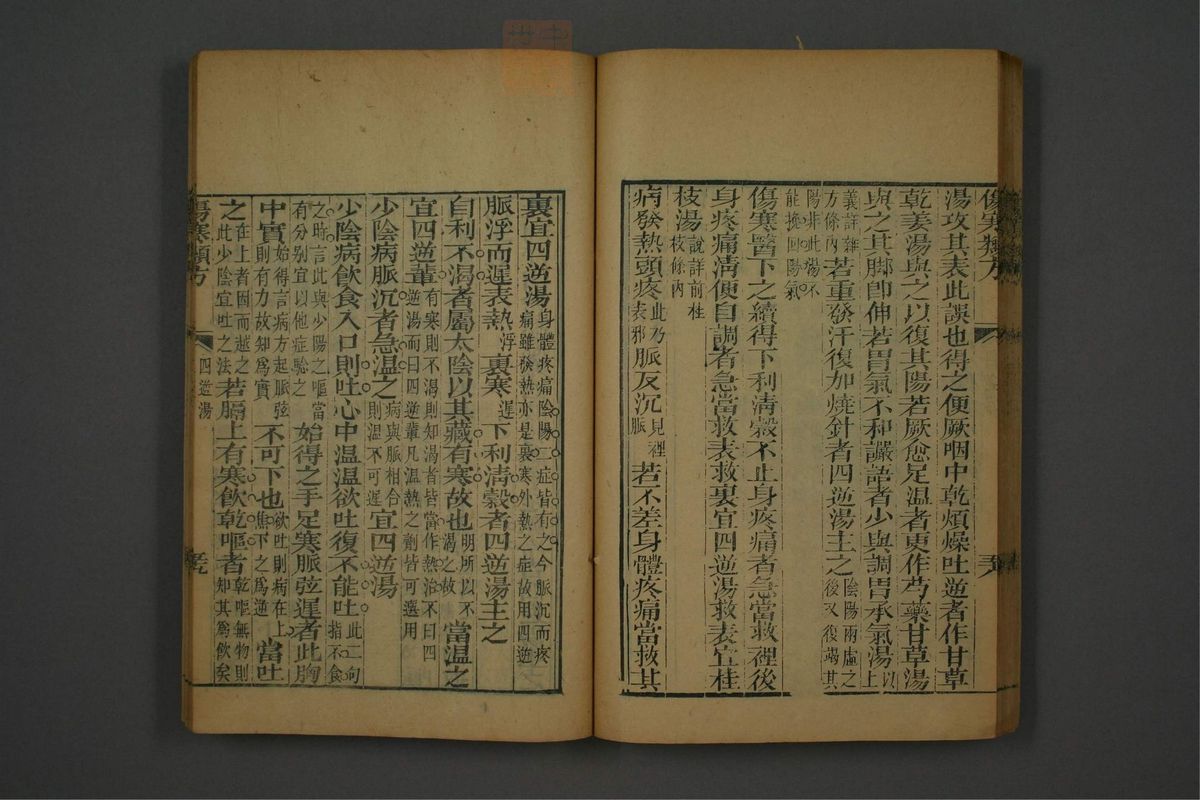 傷寒類方
湯攻其表此誤也得之便厥咽中乾煩燥吐逆者作甘草
乾姜湯與之以復其陽若厥愈足溫者更作芍藥甘草湯
與之其脚卽伸若胃氣不和讝語者少與調胃承氣湯以上
義詳雜方條內若重發汗復加燒針者四逆湯主之陰陽兩虛之後又復竭其
陽非此湯不能挽回陽氣
傷寒醫下之續得下利淸穀不止身疼痛者急當救裡後
身疼痛淸便自調者急當救表救裏宜四逆湯救表宜桂
枝湯說詳前桂枝條內
病發熱頭疼此乃表邪脈反沉見裡脈若不差身體疼痛當救其
裏宜四逆湯身體疼痛陰陽二症皆有之今脈沉而疼痛雖發熱亦是裏寒外熱之症故用四逆
脈浮而遲表熱浮裏寒遲下利淸穀者四逆湯主之
自利不渴者屬太陰以其藏有寒故也明所以不渴之故當溫之
宜四逆輩有寒則不渴則知渴者皆當作熱治不曰四逆湯而曰四逆輩凡溫熱之劑皆可選用
少陰病脈沉者急溫之病與脈相合則溫不可遲宜四逆湯
少陰病飲食入口則吐心中溫溫欲吐復不能吐此二句指不食
之時言此與少陽之嘔當有分別宜以他症驗之始得之手足寒脈弦遲者此胸
中實始得言病方起脈弦則有力故知爲實不可下也欲吐則病在上焦下之爲逆當吐
之在上者因而越之此少陰宜吐之法若膈上有寒飲乾嘔者乾嘔無物則知其爲飲矣
傷寒類方
四逆湯